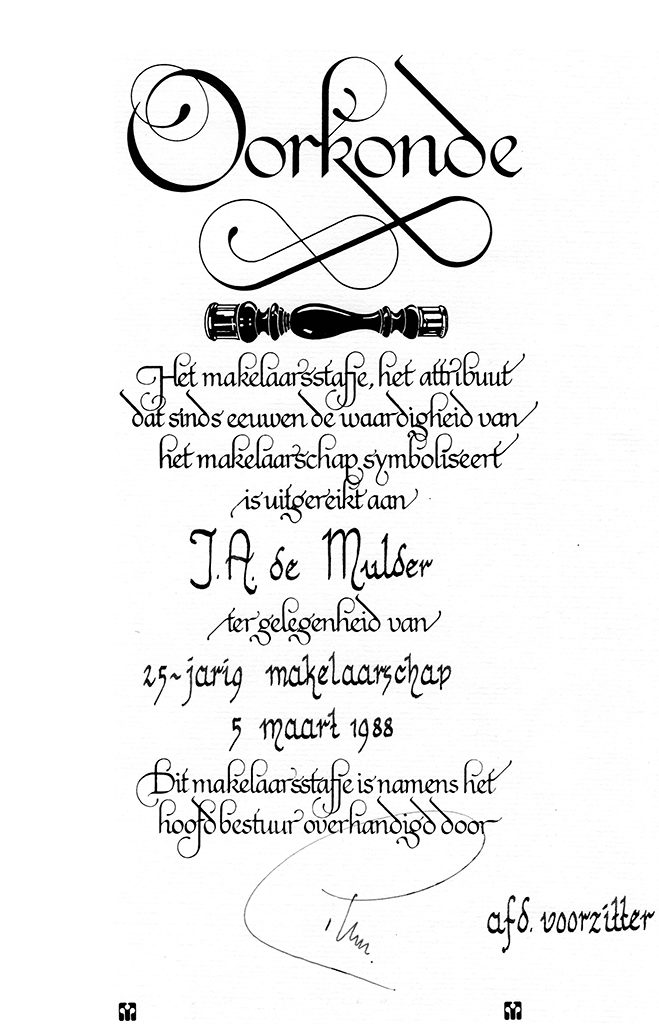 Oorkonde
Het makelaarsstafje, het attribuut
dat sinds eeuwen de waardigheid van
het makelaarschap symboliseert
is uitgereikt aan
J.A. de Mulder
ter gelegenheid van
25~jarig makelaarschap
5 maart 1988
Dit makelaarsstafje is namens het
hoofdbestuur overhandigd door
afd. voorzitter